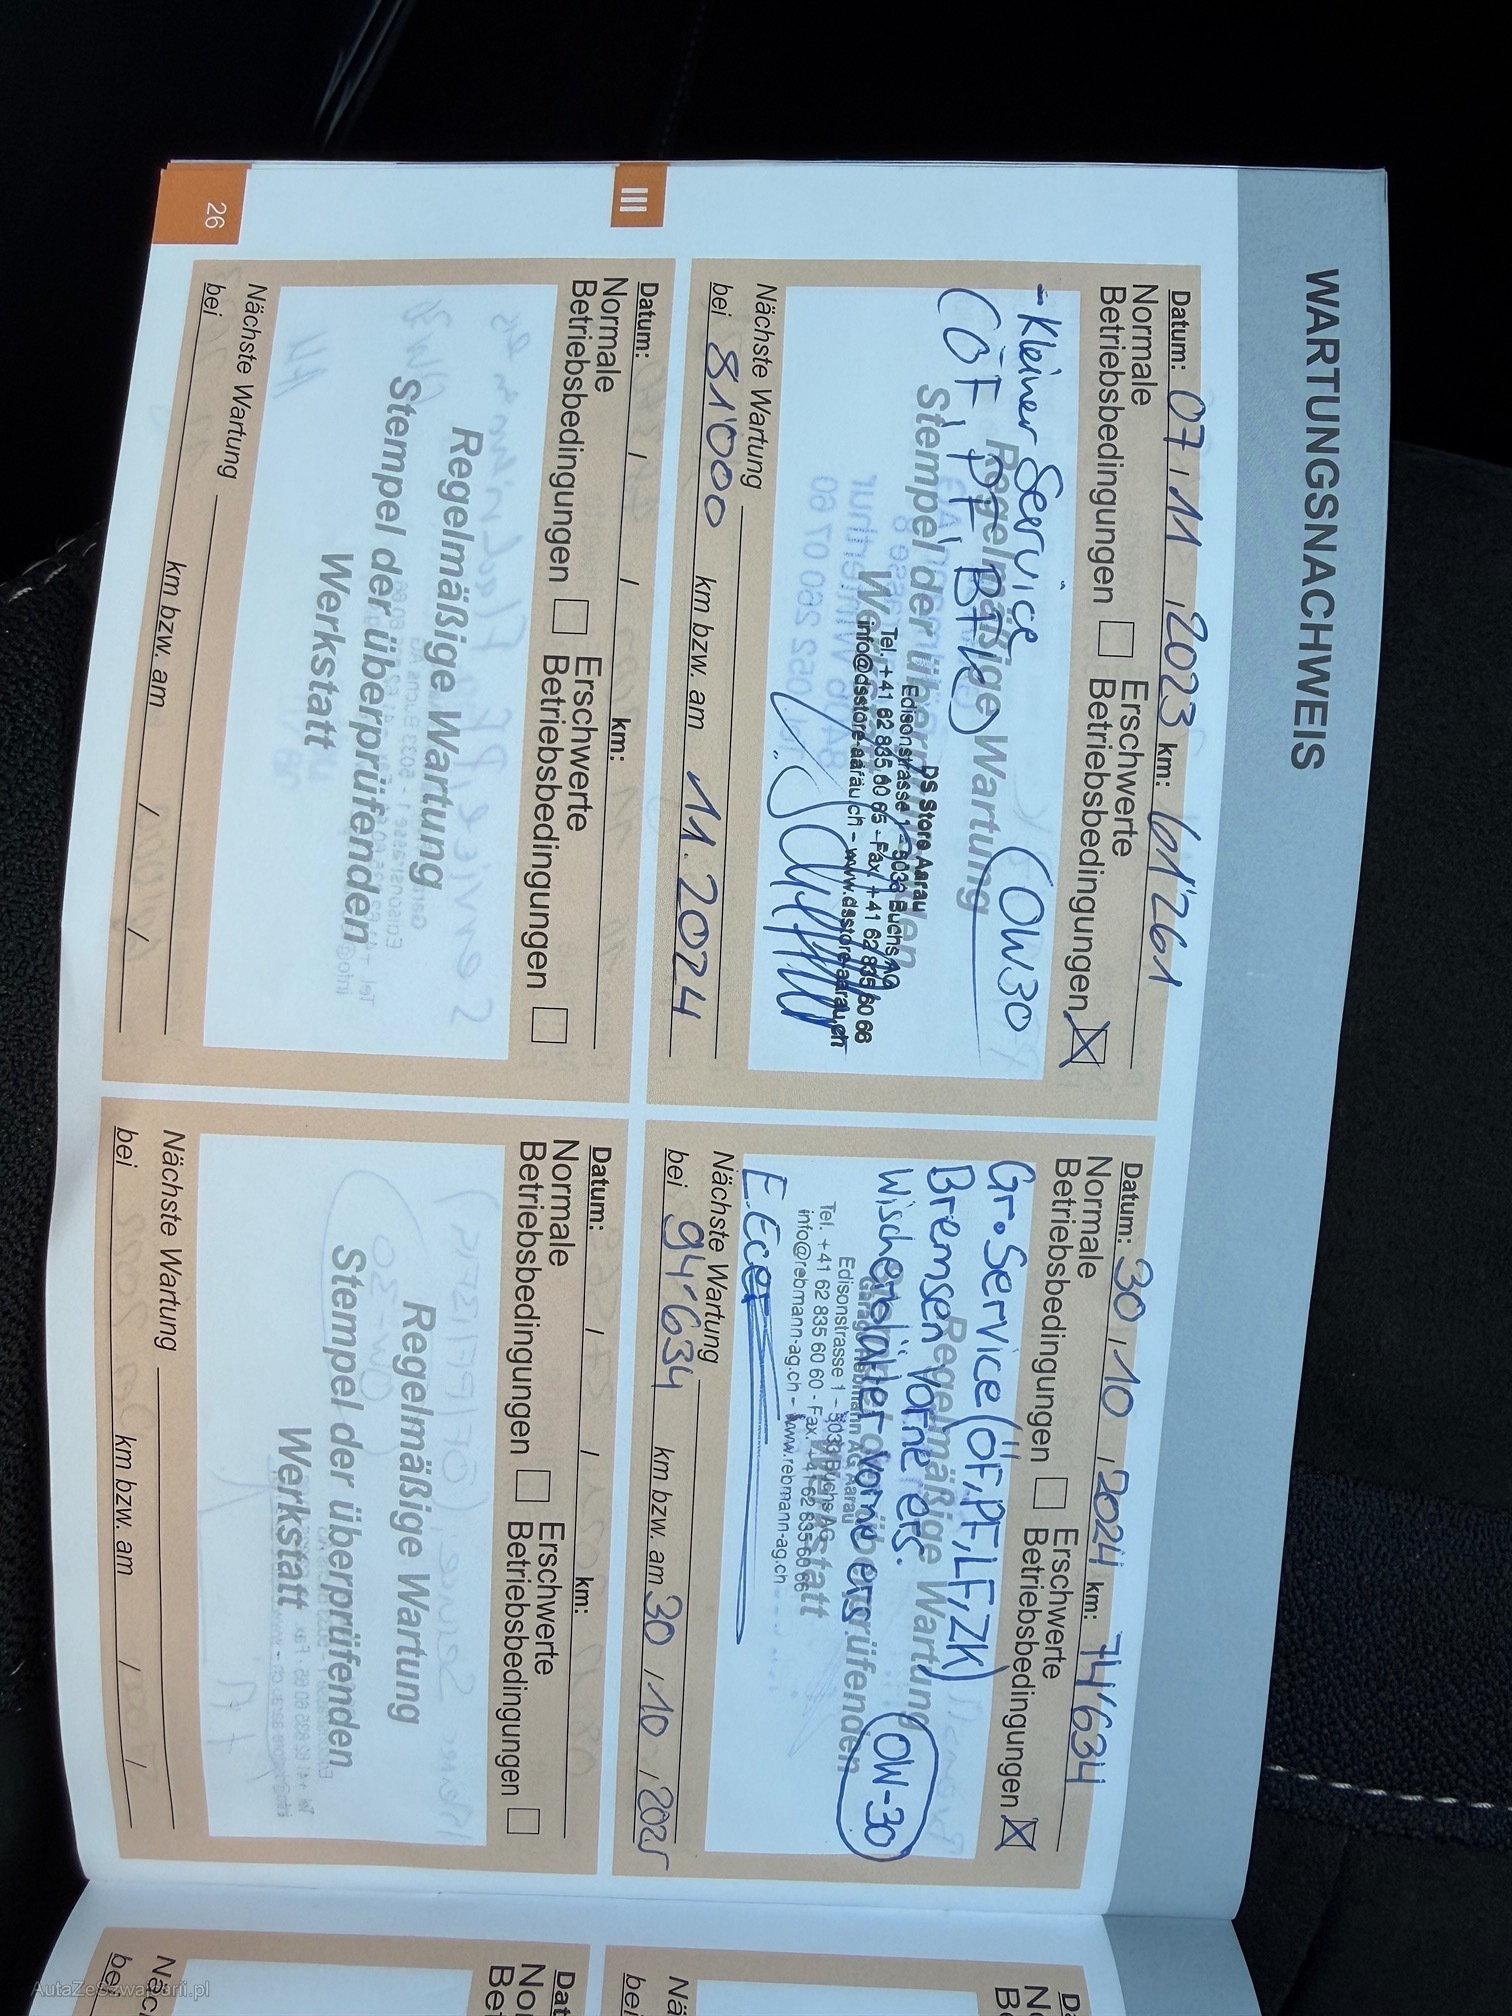 WARTUNGSNACHWEIS
Datum: 07,11,2023 km: 61'261
Normale
Betriebsbedingungen
Erschwerte
Betriebsbedingungen
- Kleiner Service
(ÖF, PF, BFK)
(0W30
Regelmäßige Wartung
Stempel der überprüfenden
DS Store Aarau
Edisonstrasse 1 - 5033 Buchs AG
Tel. +41 62 835 60 65 - Fax. +41 62 835 60 66
info@dsstore-aarau.ch - www.dsstore-aarau.ch
Nächste Wartung
bei 81'000 km bzw. am 11.2024
Datum: 30,10,2024 km: 74'634
Normale
Betriebsbedingungen
Erschwerte
Betriebsbedingungen
Gr. Service (ÖF, PF, LF, ZK)
Bremsen vorne ers.
Wischerblätter vorne ers
0W-30
Regelmäßige Wartung
Garage Rebmann AG Aarau
Edisonstrasse 1 - 5033 Buchs AG
Tel. +41 62 835 60 60 - Fax. +41 62 835 60 66
info@rebmann-ag.ch - www.rebmann-ag.ch
E.Ecer
Nächste Wartung
bei 94'634 km bzw. am 30,10,2025
III
Datum: / / km:
Normale
Betriebsbedingungen
Erschwerte
Betriebsbedingungen
Regelmäßige Wartung
Stempel der überprüfenden
Werkstatt
Nächste Wartung
bei km bzw. am / /
Datum: / / km:
Normale
Betriebsbedingungen
Erschwerte
Betriebsbedingungen
Regelmäßige Wartung
Stempel der überprüfenden
Werkstatt
Nächste Wartung
bei km bzw. am / /
26
AutaZeSzwajcarii.pl